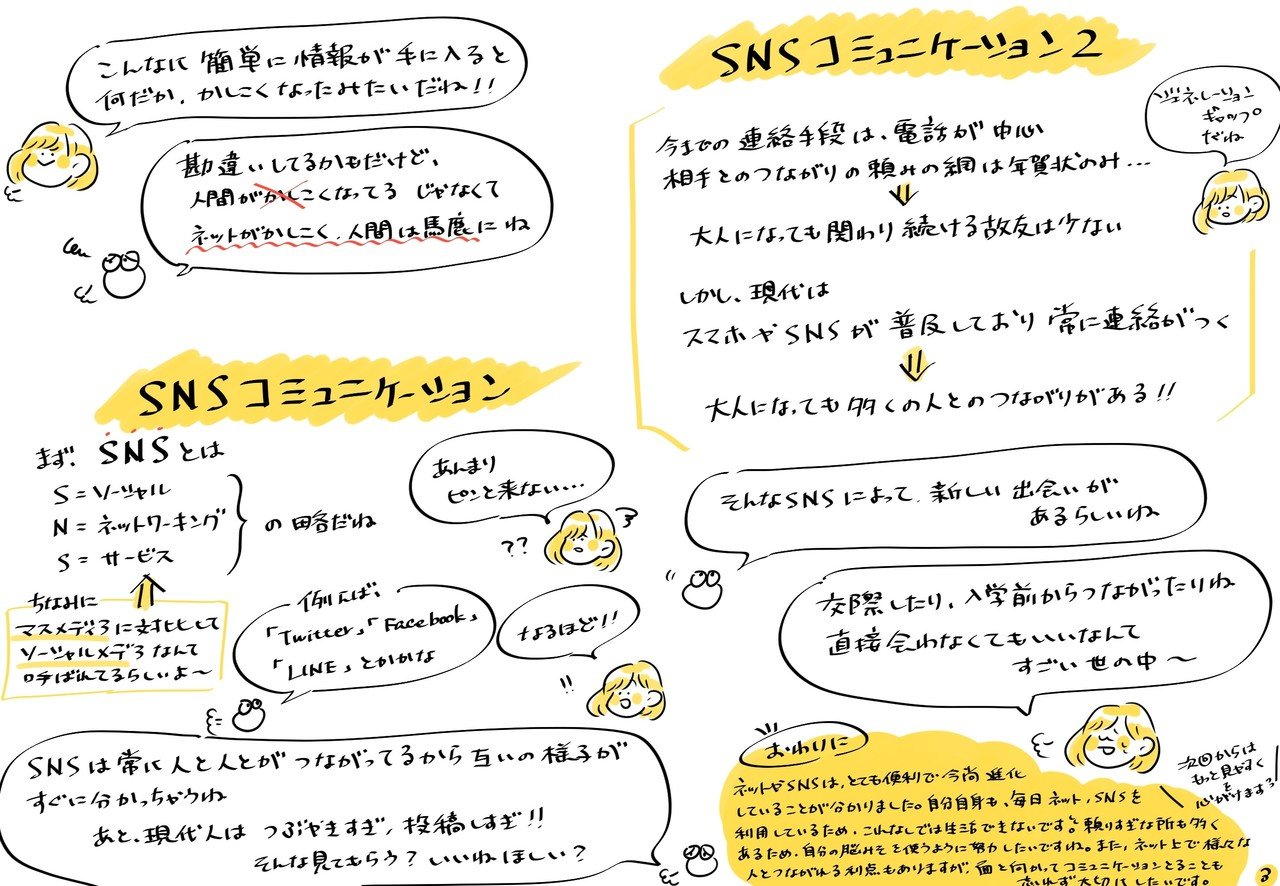 こんなに簡単に情報が手に入ると
何だか、かしこくなったみたいだね!!
勘違いしてるかもだけど、
人間がかしこくなってる じゃなくて
ネットがかしこく、人間は馬鹿にね
SNSコミュニケーション
まず、SNSとは
S=ソーシャル
N=ネットワーキング
S=サービス
の略だね
あんまり
ピンと来ない…
??
ちなみに
マスメディアに対比して
ソーシャルメディアなんて
呼ばれてるらしいよ〜
例えば、
「Twitter」「Facebook」
「LINE」とかかな
なるほど!!
!!
SNSは常に人と人とがつながってるから互いの様子が
すぐに分かっちゃうね
あと、現代人は つぶやきすぎ、投稿しすぎ!!
そんな見てもらう?いいねほしい?
SNSコミュニケーション2
ジェネレーション
ギャップ。
だね
今までの連絡手段は、電話が中心
相手とのつながりの頼みの綱は年賀状のみ…
大人になっても関わり続ける故友は少ない
しかし、現代は
スマホやSNSが普及しており常に連絡がつく
大人になっても多くの人とのつながりがある!!
そんなSNSによって、新しい出会いが
あるらしいね
交際したり、入学前からつながったりね
直接会わなくてもいいなんて
すごい世の中〜
おわりに
ネットやSNSは、とても便利で今尚進化
していることが分かりました。自分自身も、毎日ネット、SNSを
利用しているため、これなしでは生活できないです。頼りすぎな所も多く
あるため、自分の脳みそを使うように努力したいですね。また、ネット上で様々な
人とつながれる利点もありますが、面と向かってコミュニケーションとることも
忘れず大切にしたいです。
次回からは
もっと見やすく
を
心がけます
3